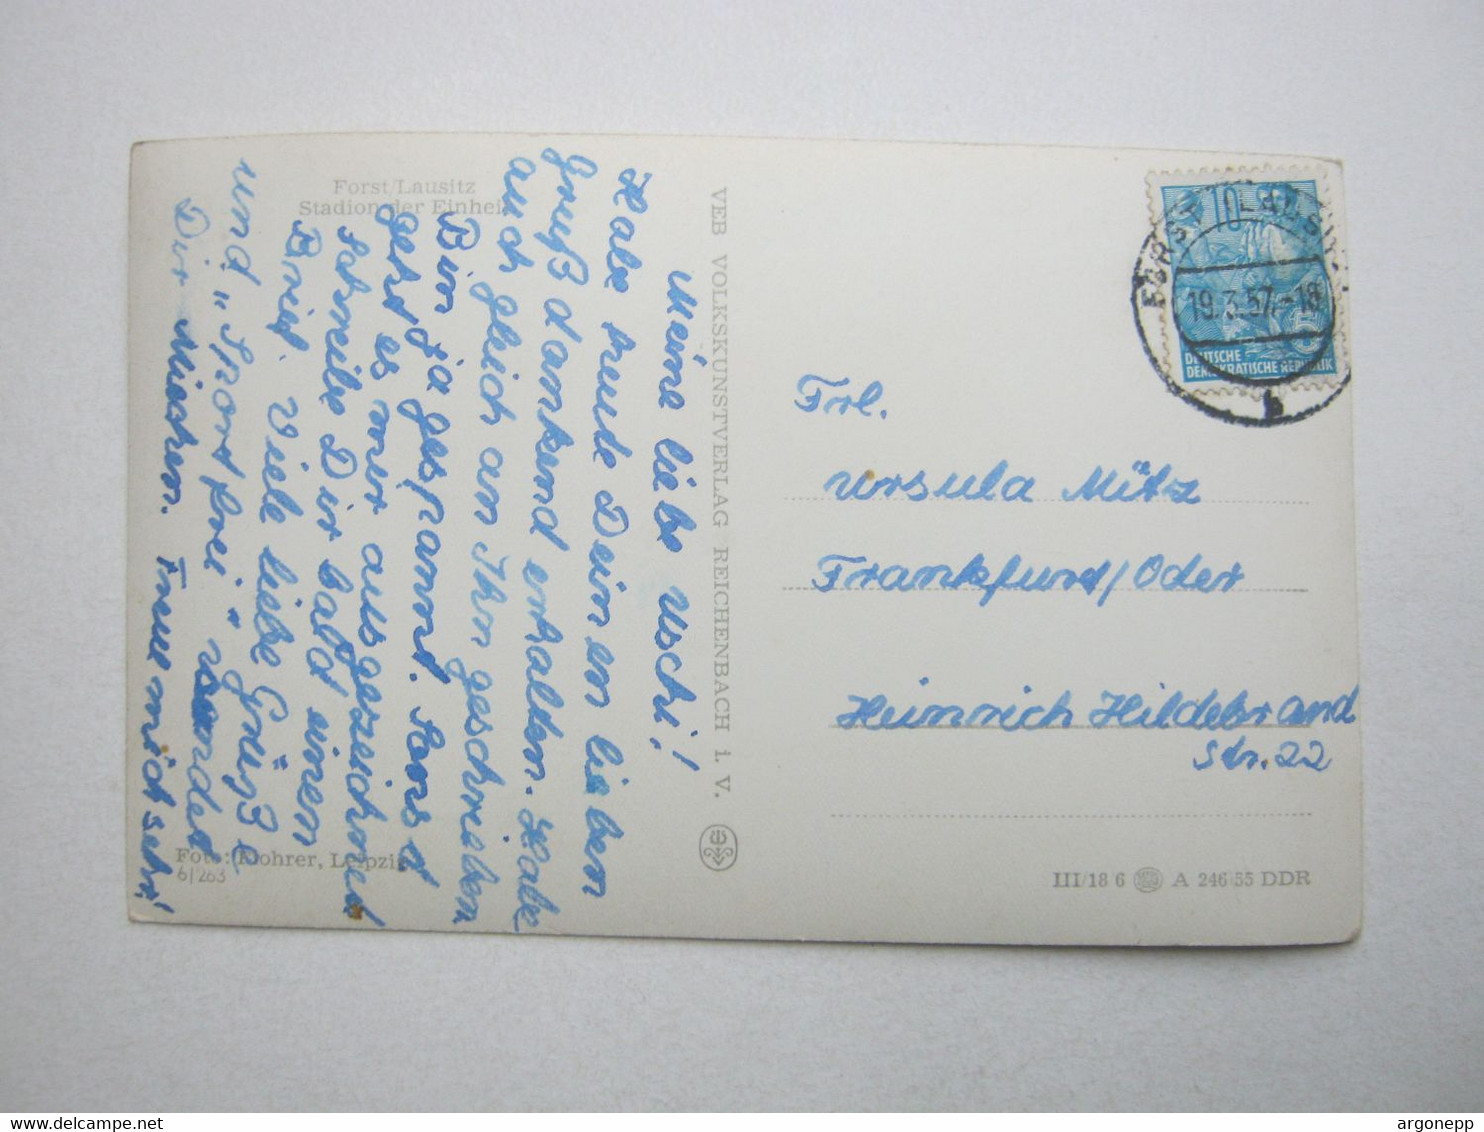 Forst/Lausitz
Stadion der Einheit
Meine liebe Uschi!
Habe heute Deinen lieben
Gruß dankend erhalten. Habe
auch gleich an Ihn geschrieben
Bin ja gespannt. Sonst
geht es mir ausgezeichnet
schreibe Dir bald einen
Brief. Viele liebe Grüße
und "Sport frei"
Dir
Freue mich sehr!
Foto: Klohrer, Leipzig
6/263
VEB VOLKSKUNSTVERLAG REICHENBACH i. V.
10
DEUTSCHE
DEMOKRATISCHE REPUBLIK
FORST (LAUSITZ)
19.3.57.-18
b
Frl.
Ursula Mütz
Frankfurt/Oder
Heinrich Hildebrand
Str. 22
III/18 6 A 246/55 DDR
www.delcampe.net
argonepp